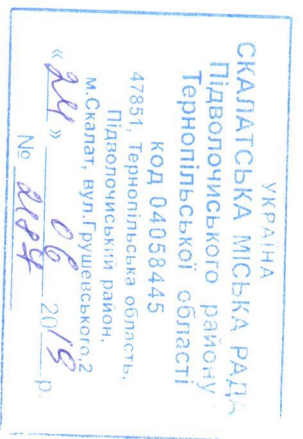 УКРАЇНА
СКАЛАТСЬКА МІСЬКА РАДА
Підволочиського району
Тернопільської області
код 04058445
47851, Тернопільська область,
Підволочиський район,
м.Скалат, вул.Грушевського,2
« 24 » 06 2018 р.
№ 2184